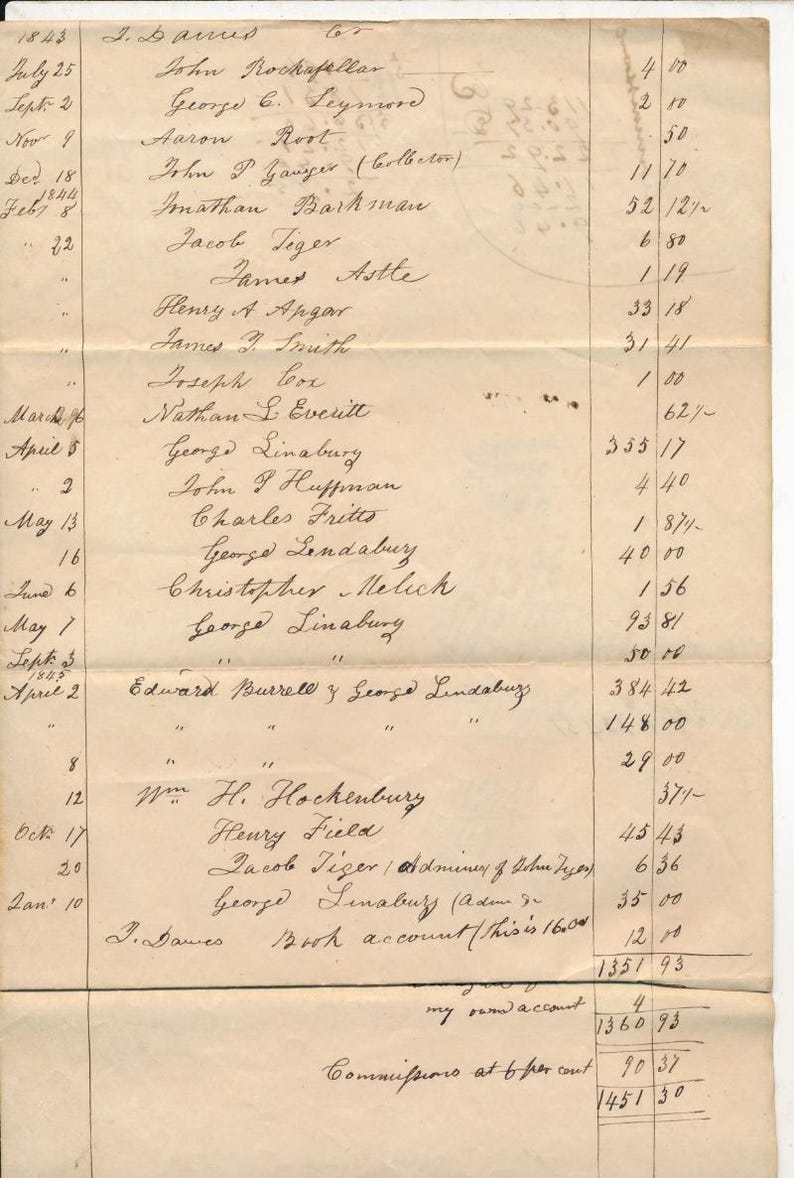 1843 J. Dawes Cr
July 25 John Rockafellar 4 00
Sept. 2 George C. Seymore 2 00
Novr 9 Aaron Root 50
Decr 18 John P Yauger (Collector) 11 70
1844
Feby 8 Jonathan Barkman 52 12½
" 22 Jacob Tiger 6 80
" James Astle 1 19
" Henry A Apgar 33 18
" James P. Smith 31 41
" Joseph Cox 1 00
March 26 Nathan L Everitt 62½
April 5 George Linabury 355 17
" 2 John P Huffman 4 40
May 13 Charles Fritts 1 87½
16 George Lendabury 40 00
June 6 Christopher Melick 1 56
May 7 George Linabury 93 81
Sept. 3 " " 50 00
1845
April 2 Edward Burrell & George Lendabury 384 42
" " " " " 148 00
8 " " 29 00
12 Wm H. Hockenbury 37½
Oct. 17 Henry Field 45 43
20 Jacob Tiger (Adminr of John Tiger) 6 36
Jany 10 George Linabury (Adm 35 00
J. Dawes Book account (This is 16.00 12 00
1351 93
my own account 4
1360 93
Commissions at 6 per cent 90 37
1451 30